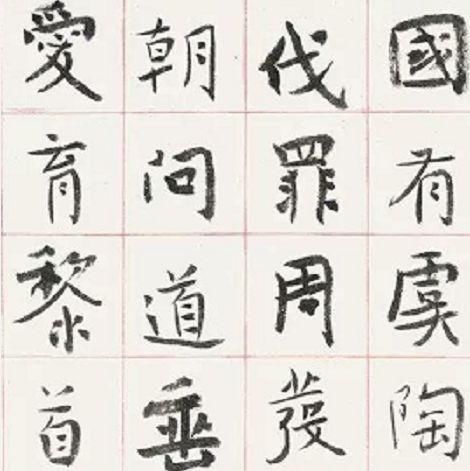 國有虞陶
伐罪周發
朝問道垂
愛育黎首